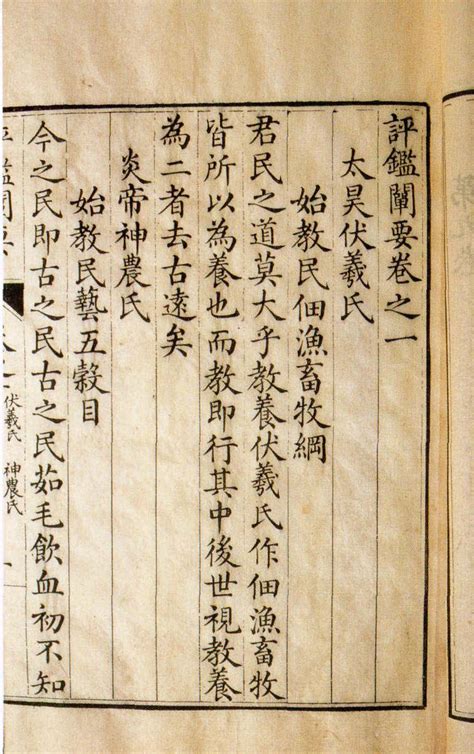 評鑑闡要卷之一
太昊伏羲氏
始教民佃漁畜牧綱
君民之道莫大乎教養伏羲氏作佃漁畜牧
皆所以為養也而教即行其中後世視教養
為二者去古遠矣
炎帝神農氏
始教民藝五穀目
今之民即古之民古之民茹毛飲血初不知
伏羲氏 神農氏
一